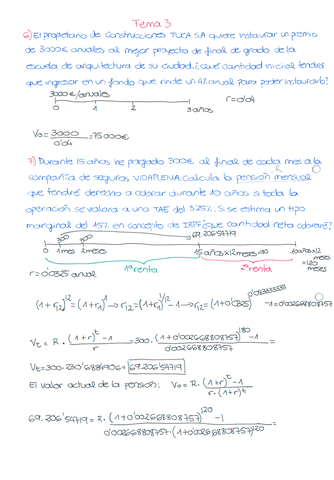 Tema 3
6) El propietario de Construcciones TUCA SA quiere instaurar un premio
de 3000€ anuales al mejor proyecto de final de grado de la
escuela de arquitectura de su ciudad. ¿Qué cantidad inicial tendrá
que ingresar en un fondo que rinde un 4% anual para poder instaurarlo?
3000€/anuales
r=0'04
0 1 2 3 años
Vo = 3000/0'04 = 75000€
7) Durante 15 años he pagado 300€ al final de cada mes a la
compañía de seguros VIDAPLENA. Calcula la pensión mensual
que tendré derecho a cobrar durante 10 años si toda la
operación se valora a una TAE del 3'25%. Si se estima un tipo
marginal del 15% en concepto de IRPF ¿que cantidad neta cobraré?
300 300 69.206'54719
0 1mes 2mes 15 años x12 meses=180 10 años x12 meses =120
r=0'0325 anual 1ª renta 2ª renta
(1+r12)^12 = (1+r1)^1 → r12 = (1+r1)^1/12 - 1 → r12 = (1+0'0325)^0'083333333 - 1 = 0'002668808757
Vt = R · (1+r)^t - 1 / r = 300 · (1+0'002668808757)^180 - 1 / 0'002668808757 =
Vt = 300 · 230'6884906 = 69.206'54719
El valor actual de la pensión: Vo = R · (1+r)^t - 1 / r · (1+r)^t
69.206'54719 = R · (1+0'002668808757)^120 - 1 / 0'002668808757 · (1+0'002668808757)^120 =